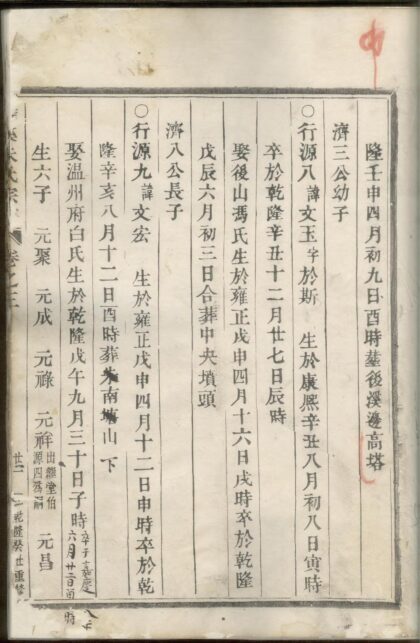 隆壬申四月初九日酉時塟後溪邊高塔
濟三公幼子
〇行源八諱文玉字於斯 生於康熙辛丑八月初八日寅時
卒於乾隆辛丑十二月廿七日辰時
娶後山馮氏生於雍正戊申四月十六日戌時卒於乾隆
戊辰六月初三日合葬中央墳頭
濟八公長子
〇行源九諱文宏 生於雍正戊申四月十二日申時卒於乾
隆辛亥八月十二日酉時葬南山下
娶温州府白氏生於乾隆戊午九月三十日子時卒于嘉慶六月廿二日酉時
生六子 元聚 元成 元祿 元祥出繼堂伯源四爲嗣 元昌
卷之三 廿二 乾隆癸丑重修